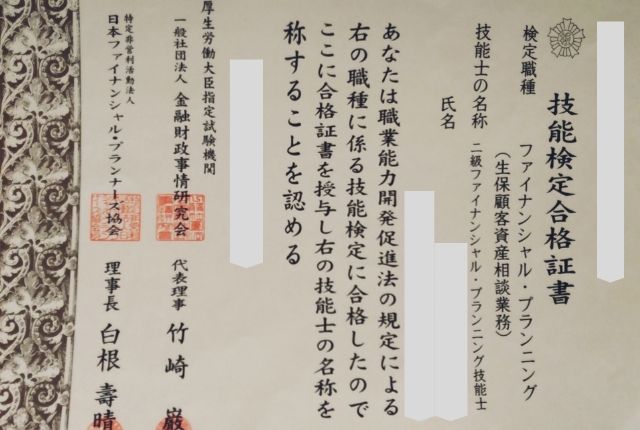 技能検定合格証書
検定職種 ファイナンシャル・プランニング
（生保顧客資産相談業務）
技能士の名称 二級ファイナンシャル・プランニング技能士
氏名
あなたは職業能力開発促進法の規定による
右の職種に係る技能検定に合格したので
ここに合格証書を授与し右の技能士の名称を
称することを認める
厚生労働大臣指定試験機関
一般社団法人 金融財政事情研究会 代表理事 竹崎 巌
特定非営利活動法人
日本ファイナンシャル・プランナーズ協会 理事長 白根 壽晴